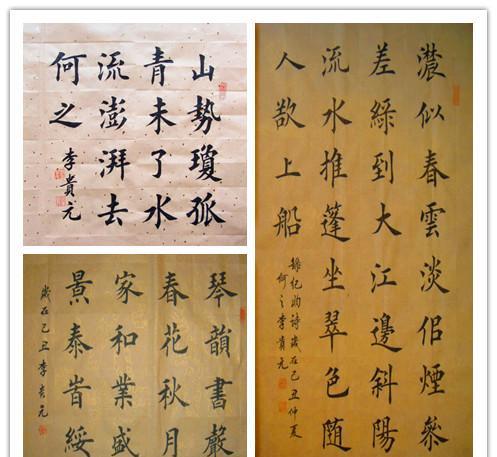 山勢瓊孤
青未了水
流澎湃去
何之
李貴元
濃似春雲淡佀煙參
差綠到大江邊斜陽
流水推蓬坐翠色隨
人欲上船
錄紀昀詩歲在己丑仲夏
何之李貴元
琴韻書聲
春花秋月
家和業盛
景泰旹綏
歲在己丑李貴元